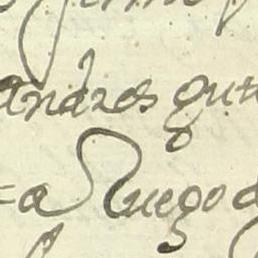 andres gut
=a Ruego d